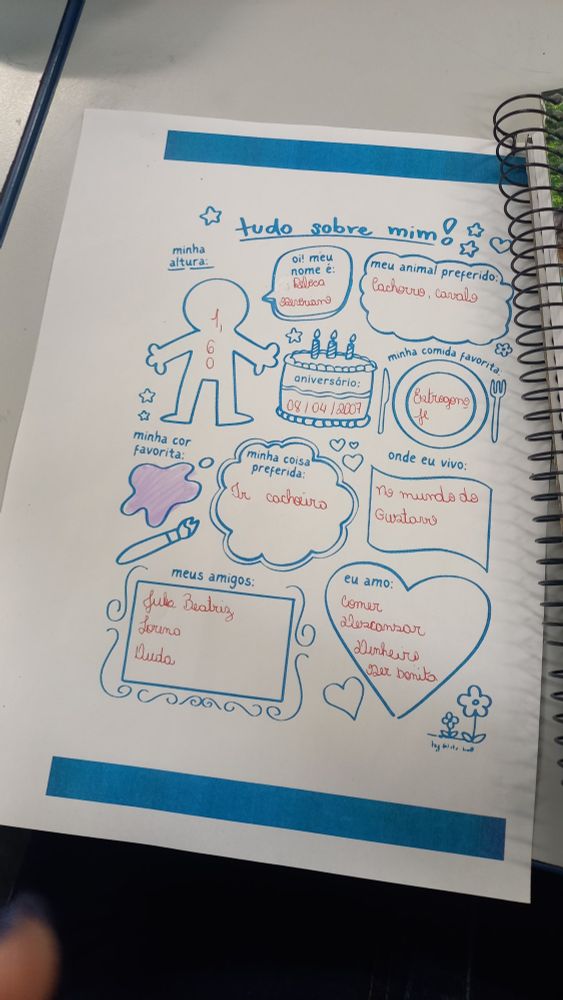 tudo sobre mim!
minha
altura:
1,
6
0
oi! meu
nome é:
meu animal preferido:
Cachorro, cavalo
aniversário:
08/04/2007
minha comida favorita:
minha cor
favorita:
minha coisa
preferida:
Ir cachoeira
onde eu vivo:
No mundo do
Gustavo
meus amigos:
Julia Beatriz
Lorena
Duda
eu amo:
Comer
Descansar
Dinheiro
Ser bonita